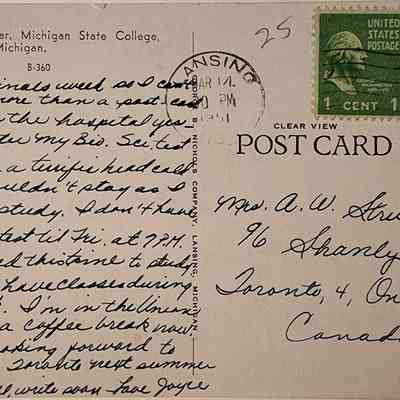 er, Michigan State College,
Michigan,
B-360
inals week so I can't
more than a post-card
the hospital yes
ter my Bio. Sci. test
a terrific head cold
uldn't stay as I
study. I don't have
test til Fri. at 7 P.M.
ed this time to study
have classes during
I'm in the Union
a coffee break now
oking forward to
Toronto next summer
write soon Love Joyce
BOND B. NICHOLS COMPANY, LANSING, MICHIGAN
25
LANSING
MAR 14
PM
1951
UNITED
STATES
POSTAGE
1 CENT 1
CLEAR VIEW
POST CARD
Mrs. A. W. Stru
96 Shanly
Toronto, 4, On
Canada